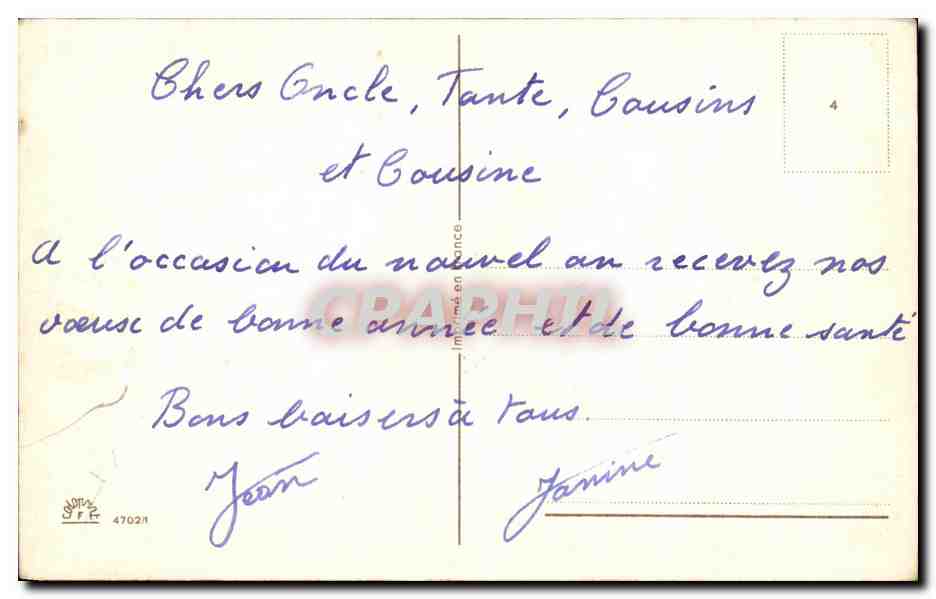 Chers Oncle, Tante, Cousins
4
et Cousine
A l'occasion du nouvel an recevez nos
voeux de bonne année et de bonne santé
Bons baisers à tous.
Jean
Janine
Imprimé en France
CPAPHIL
4702/1